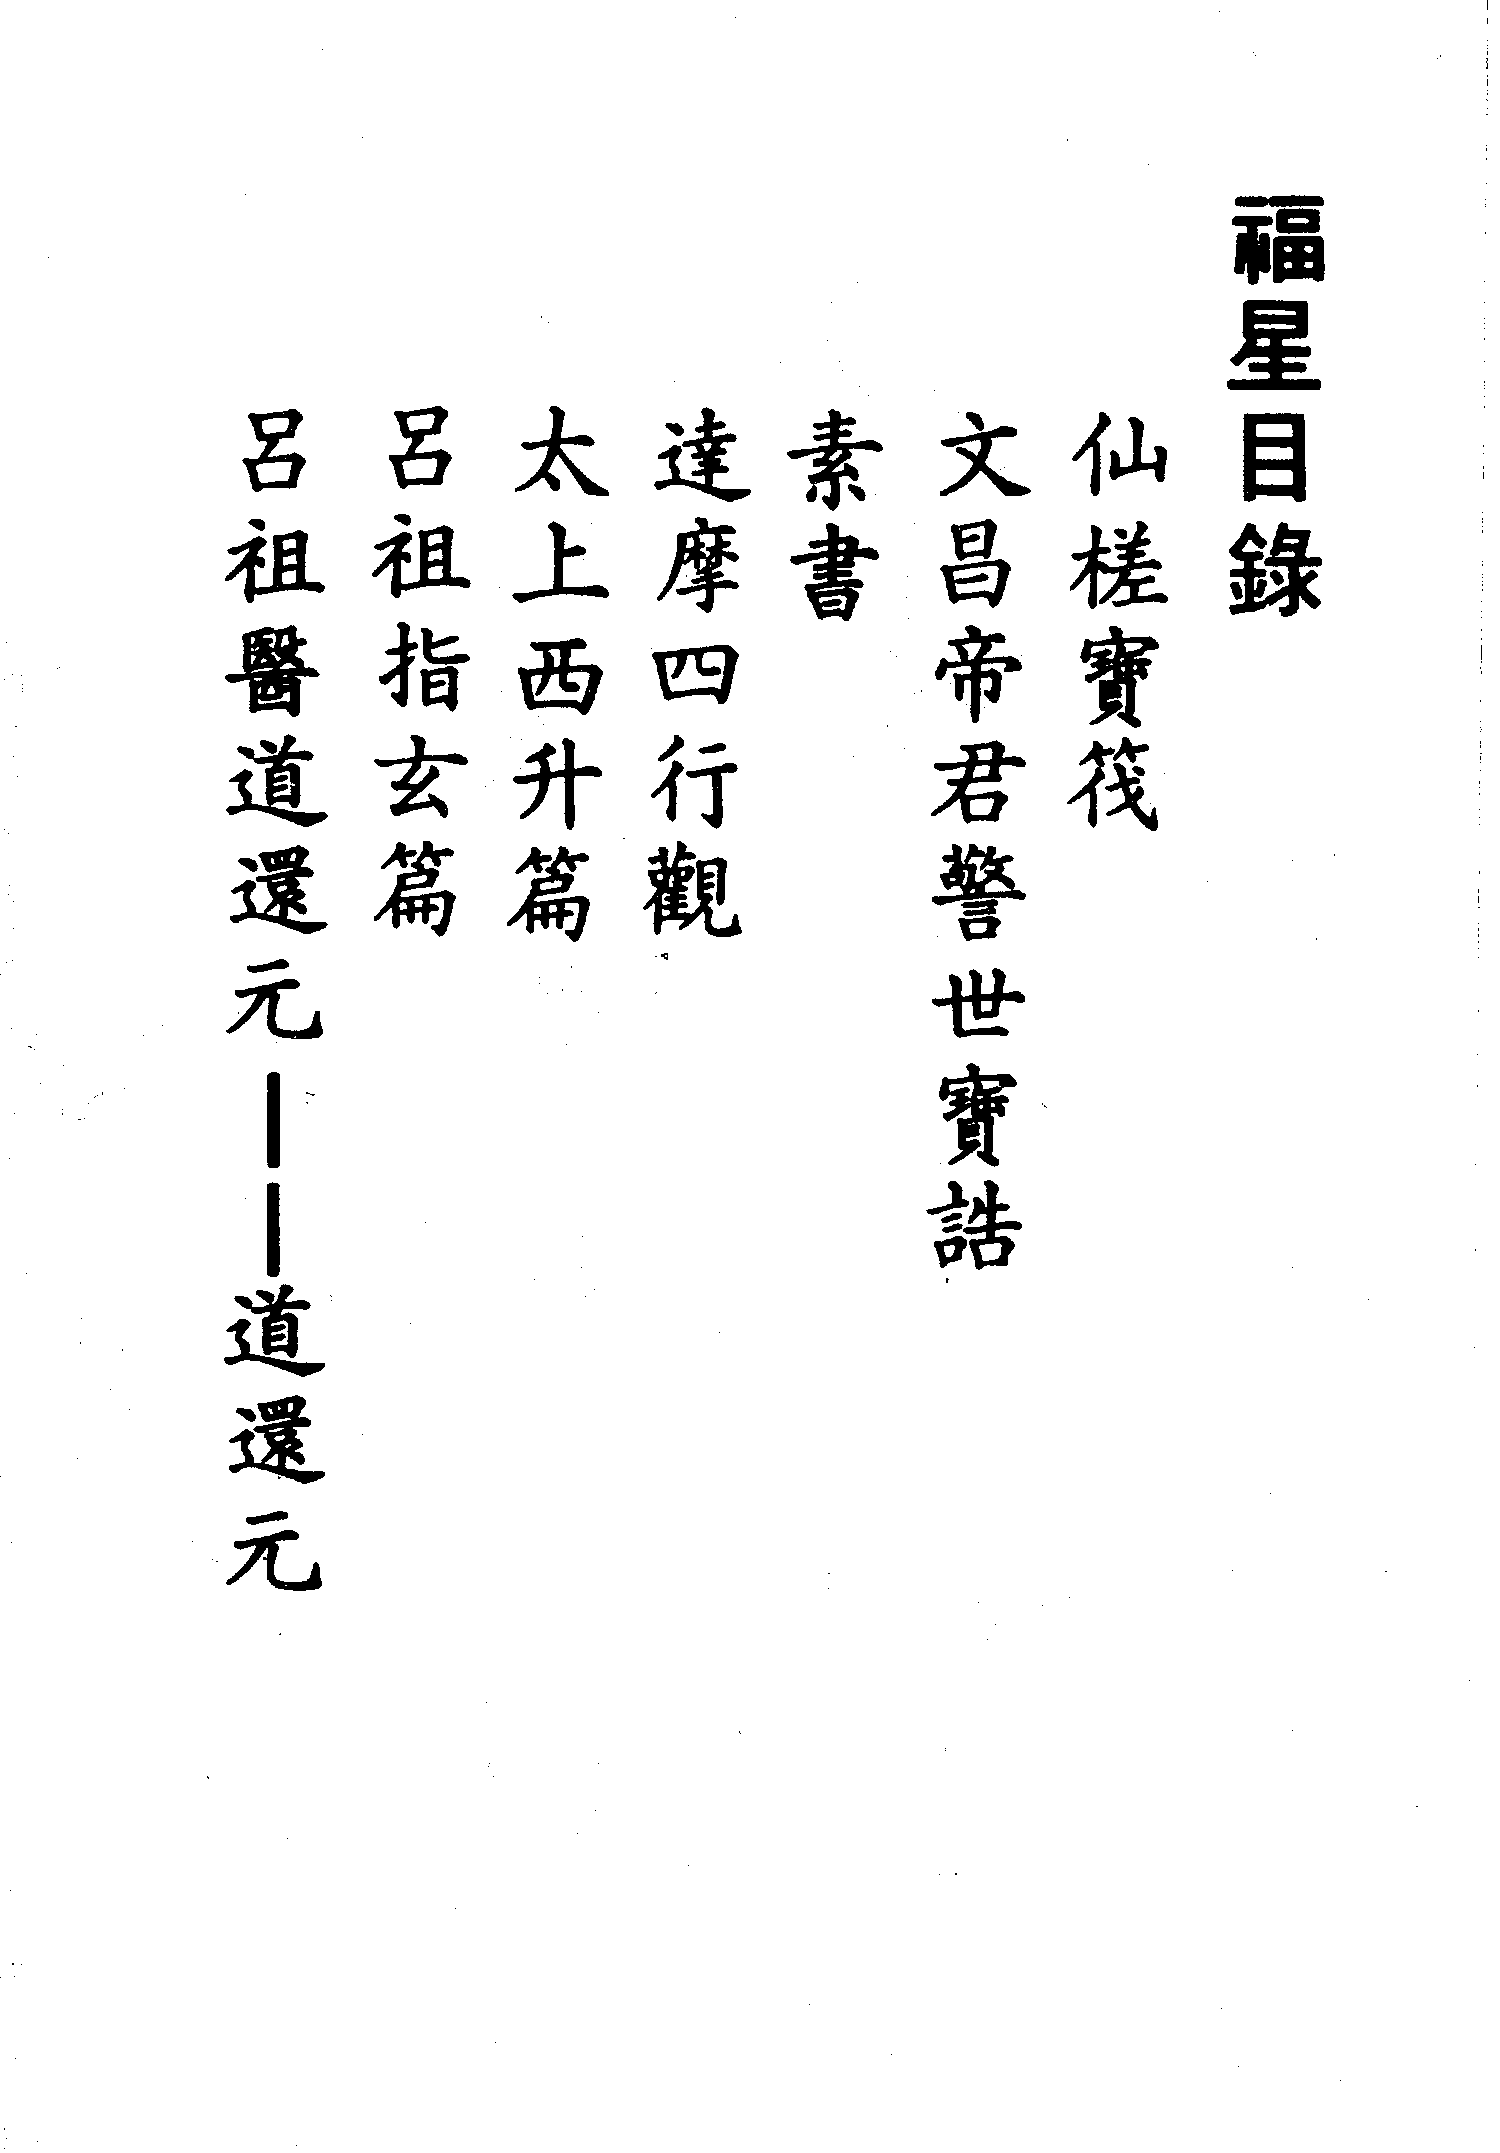 福星目錄
仙槎寶筏
文昌帝君警世寶誥
素書
達摩四行觀
太上西升篇
呂祖指玄篇
呂祖醫道還元——道還元